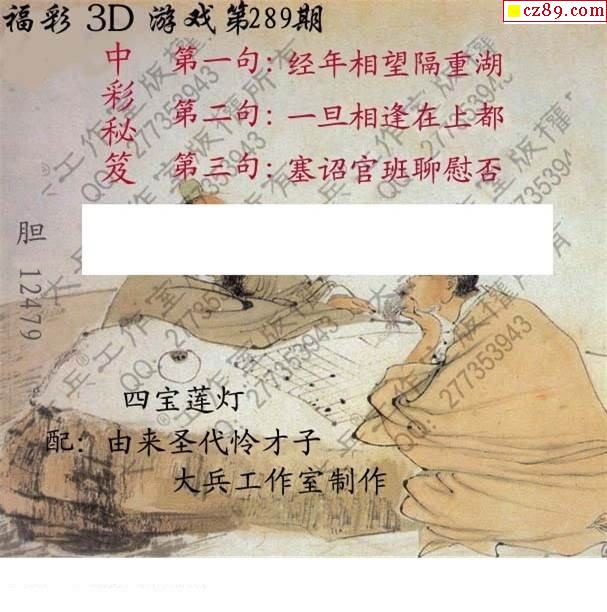 福彩 3D 游戏第289期
cz89.com
中彩秘笈
第一句：经年相望隔重湖
第二句：一旦相逢在上都
第三句：塞诏官班聊慰否
胆 12479
四宝莲灯
配：由来圣代怜才子
大兵工作室制作
大兵®工作室版权所有
QQ：277353943